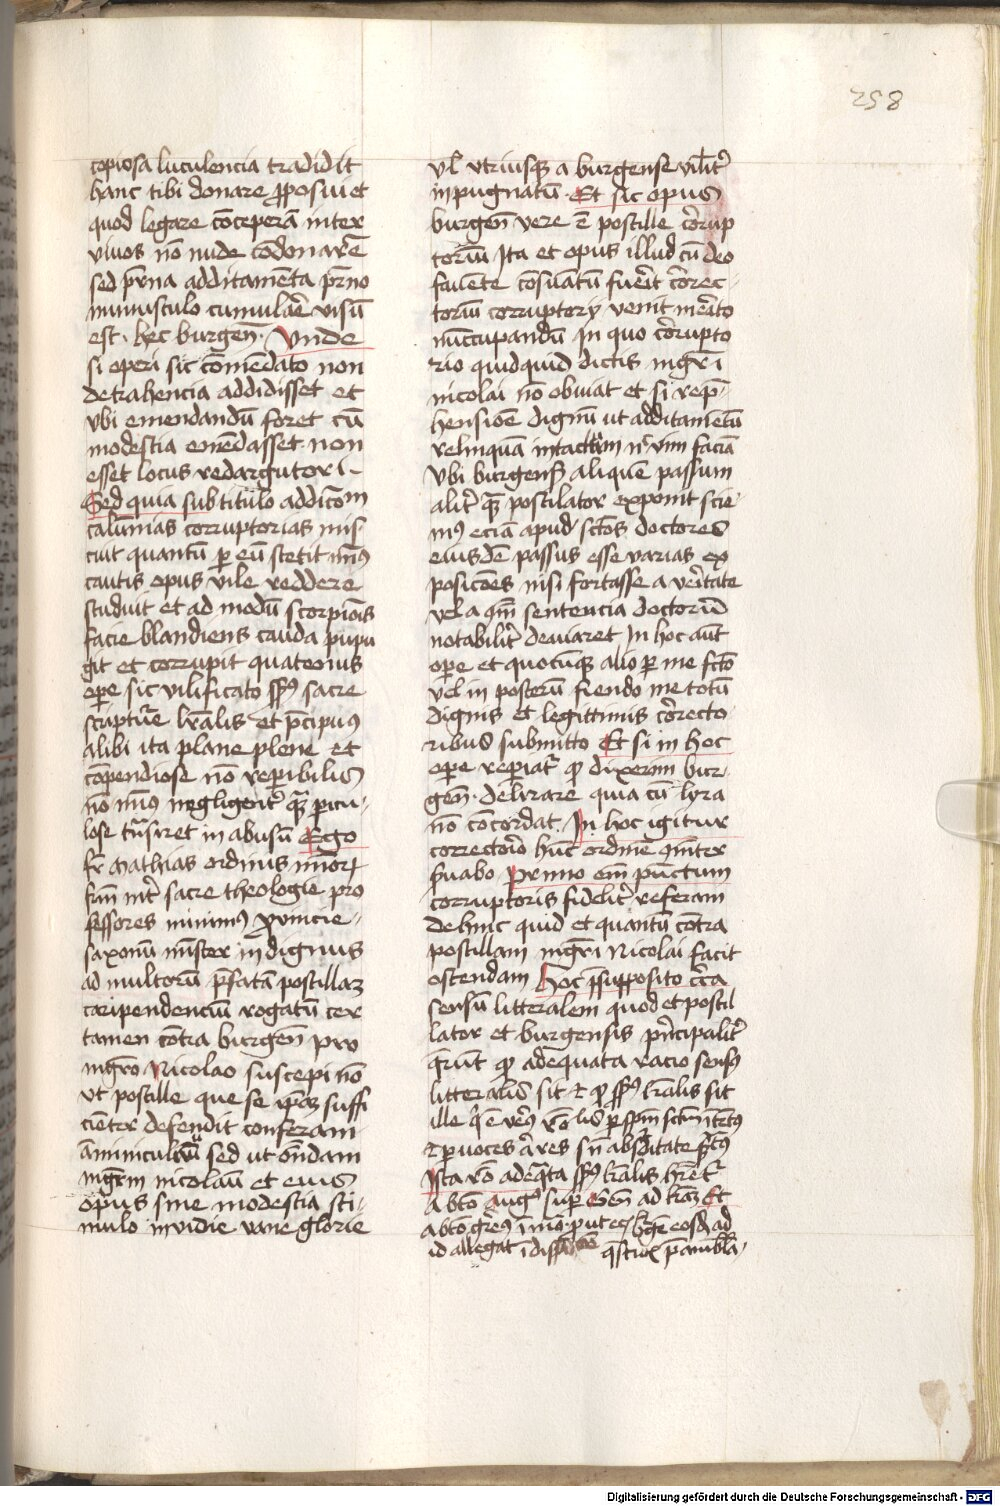 258
copiosa luculencia tradidit
hanc tibi donare p̄posui et
quod legare cōceperā inter
viuos nō nude cōdonare
sed p̄rna additamēta p̄rno
munusculo cumulare visū
est. hec burgen̄. Vnde
si operi sic cōmēdato non
detrahencia addidisset et
vbi emendandū foret cū
modestia emēdasset non
esset locus redargutori
Sed quia sub titulo addicōm
calūnias corruptorias mis
cuit quantū per eū stetit
cautis opus vile reddere
studuit et ad modū scorpiōis
facie blandiens cauda pupu
git et corrupit quatenus
ope sic vilificato sacre
scripture lr̄alis et p̄cipuus
alibi ita plane plene et
cōpendiose nō reperibilis
nō min9 negligent̄ qz picu
lose trāsiret in abusū Ego
fr̄ Mathias ordinis minorꝝ
sacre theologie pro
fessores minim9 prouincie
saxonū minister indignus
ad multorū p̄fatā postillam
caripendenciū rogatū cer
tamen cōtra burgen̄ pro
mgr̄o Nicolao suscepi nō
vt postille que se ipam suffi
cienter defendit conferam
aminiculū sed ut ostendam
mgr̄m nicolaū et eius
opus sine modestia sti
mulo inuidie vane glorie
vl̄ vtriusqz a burgense vilit̄
inpugnatū. Et sic opus
burgen̄ vere ē postille corrup
toriū Ita et opus illud cū deo
fauente cōsūatū fuerit correc
toriū corruptorij venit mērito
nūccupandū In quo corrupto
rio quidquid dictis mgr̄i
nicolai nō obuiat et si rep̄
hensiōe dignū ut additamētū
relinquā intactum nec vim faciā
Vbi burgens̄ aliquē passum
alit̄ qz postilator exponit scie
m9 eciā apud sc̄tos doctores
eiusdē passus esse varias ex
posicōes nisi fortasse a vēritate
vel a sentencia doctorū
notabilit̄ deuiaret In hoc aut̄
ope et quocūqz alio per me fc̄to
vel in posterū fiendo me totū
dignis et legittimis correcto
ribus submitto Et si in hoc
ope reperiat̄ qd dixerim bur
gen̄. delirare quia cū lyra
nō cōcordat. In hoc igitur
correctorio hūc ordinē
s̄uabo Primo em̄ pūctum
corruptoris fidelit̄ referam
dehinc quid et quantū cōtra
postillam mgr̄i Nicolai facit
ostendam Hoc p̄supposito circa
sensū litteralem quod et postil
lator et burgensis p̄ncipalit̄
q̄runt qd adequata racio sensus
litteralis sit et qd lr̄alis sit
ille q̄ ē
per voces
Ista rō adeq̄ta lr̄alis
A bto Aug9 sup Gen̄ ad lr̄am Et
a bto
id allegat